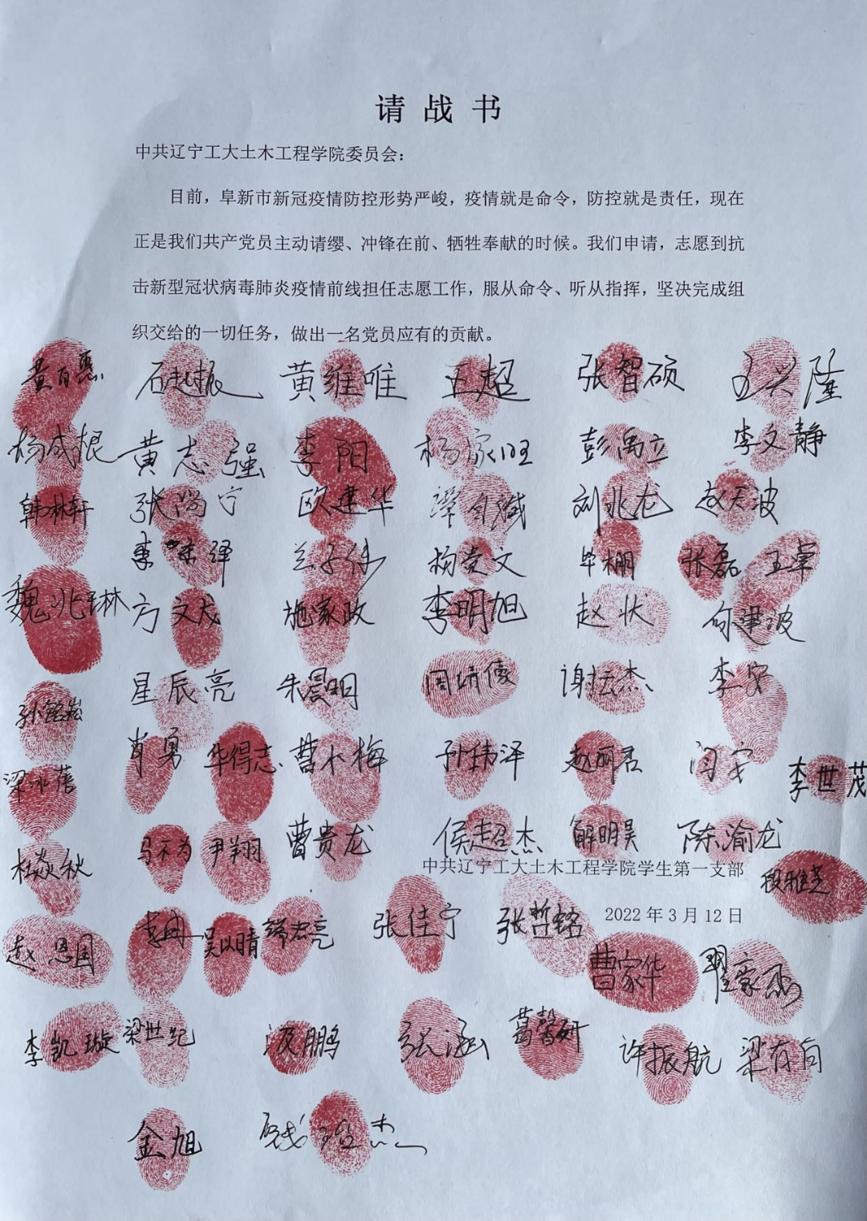 请战书
中共辽宁工大土木工程学院委员会：
目前，阜新市新冠疫情防控形势严峻，疫情就是命令，防控就是责任，现在
正是我们共产党员主动请缨、冲锋在前、牺牲奉献的时候。我们申请，志愿到抗
击新型冠状病毒肺炎疫情前线担任志愿工作，服从命令、听从指挥，坚决完成组
织交给的一切任务，做出一名党员应有的贡献。
石赵振 黄维唯 王超 张智硕 王兴隆
杨成根 黄志强 李阳 杨家旺 彭禹立 李文静
韩林轩 张尚宁 欧建华 刘兆龙 赵天波
杨党文 毕棚 张磊
魏兆琳 方文龙 施家政 李明旭 赵状 向建波
星辰亮 朱晨明 周倚俊 谢坛杰 李宇
肖勇 华得志 曹小梅 孙纬泽 赵丽君 闫宇 李世茂
马不为 尹翔羽 曹贵龙 侯超杰 解明昊 陈渝龙
中共辽宁工大土木工程学院学生第一支部
2022年3月12日
赵恩国 吴以晴 张佳宁 张哲铭
曹家华
李凯璇 梁世纪 凌鹏 张涵 葛馨妍 许振航 梁有向
金旭